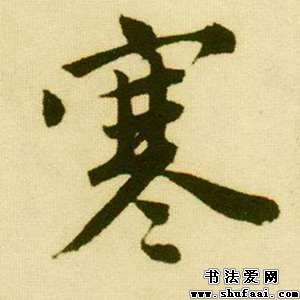 寒
书法爱网
www.shufaai.com